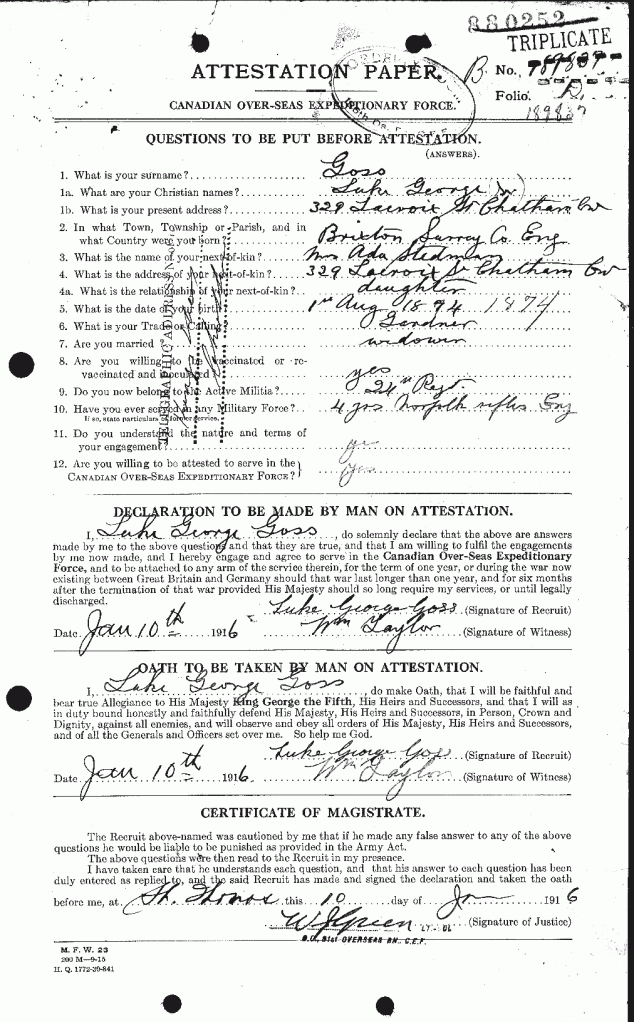 880252
TRIPLICATE
ATTESTATION PAPER.
B No. 789837
Folio.
189837
CANADIAN OVER-SEAS EXPEDITIONARY FORCE.
QUESTIONS TO BE PUT BEFORE ATTESTATION.
(ANSWERS).
1. What is your surname? Goss
1a. What are your Christian names? Luke George
1b. What is your present address? 329 Lacroix St Chatham Ont
2. In what Town, Township or Parish, and in
what Country were you born? Brixton Surrey Co. Eng
3. What is the name of your next-of-kin? Mrs Ada Stedman
4. What is the address of your next-of-kin? 329 Lacroix St Chatham Ont
4a. What is the relationship of your next-of-kin? daughter
5. What is the date of your birth? 1st Aug 1874 1874
6. What is your Trade or Calling? Gardner
7. Are you married? widower
8. Are you willing to be vaccinated or re-
vaccinated and inoculated? yes
9. Do you now belong to the Active Militia? 24th Regt
10. Have you ever served in any Military Force? 4 yrs Norfolk rifles Eng
If so, state particulars of former service.
11. Do you understand the nature and terms of
your engagement? yes
12. Are you willing to be attested to serve in the
CANADIAN OVER-SEAS EXPEDITIONARY FORCE? yes
DECLARATION TO BE MADE BY MAN ON ATTESTATION.
I, Luke George Goss, do solemnly declare that the above are answers
made by me to the above questions and that they are true, and that I am willing to fulfil the engagements
by me now made, and I hereby engage and agree to serve in the Canadian Over-Seas Expeditionary
Force, and to be attached to any arm of the service therein, for the term of one year, or during the war now
existing between Great Britain and Germany should that war last longer than one year, and for six months
after the termination of that war provided His Majesty should so long require my services, or until legally
discharged.
Luke George Goss (Signature of Recruit)
Date Jan 10th 1916 Wm Taylor (Signature of Witness)
OATH TO BE TAKEN BY MAN ON ATTESTATION.
I, Luke George Goss, do make Oath, that I will be faithful and
bear true Allegiance to His Majesty King George the Fifth, His Heirs and Successors, and that I will as
in duty bound honestly and faithfully defend His Majesty, His Heirs and Successors, in Person, Crown and
Dignity, against all enemies, and will observe and obey all orders of His Majesty, His Heirs and Successors,
and of all the Generals and Officers set over me. So help me God.
Luke George Goss (Signature of Recruit)
Date Jan 10th 1916 Wm Taylor (Signature of Witness)
CERTIFICATE OF MAGISTRATE.
The Recruit above-named was cautioned by me that if he made any false answer to any of the above
questions he would be liable to be punished as provided in the Army Act.
The above questions were then read to the Recruit in my presence.
I have taken care that he understands each question, and that his answer to each question has been
duly entered as replied to, and the said Recruit has made and signed the declaration and taken the oath
before me, at St. Thomas this 10 day of Jan 1916
W J Green LT-COL (Signature of Justice)
O.C. 91st OVERSEAS BN., C.E.F.
M. F. W. 23
200 M—9-15
H. Q. 1772-39-841